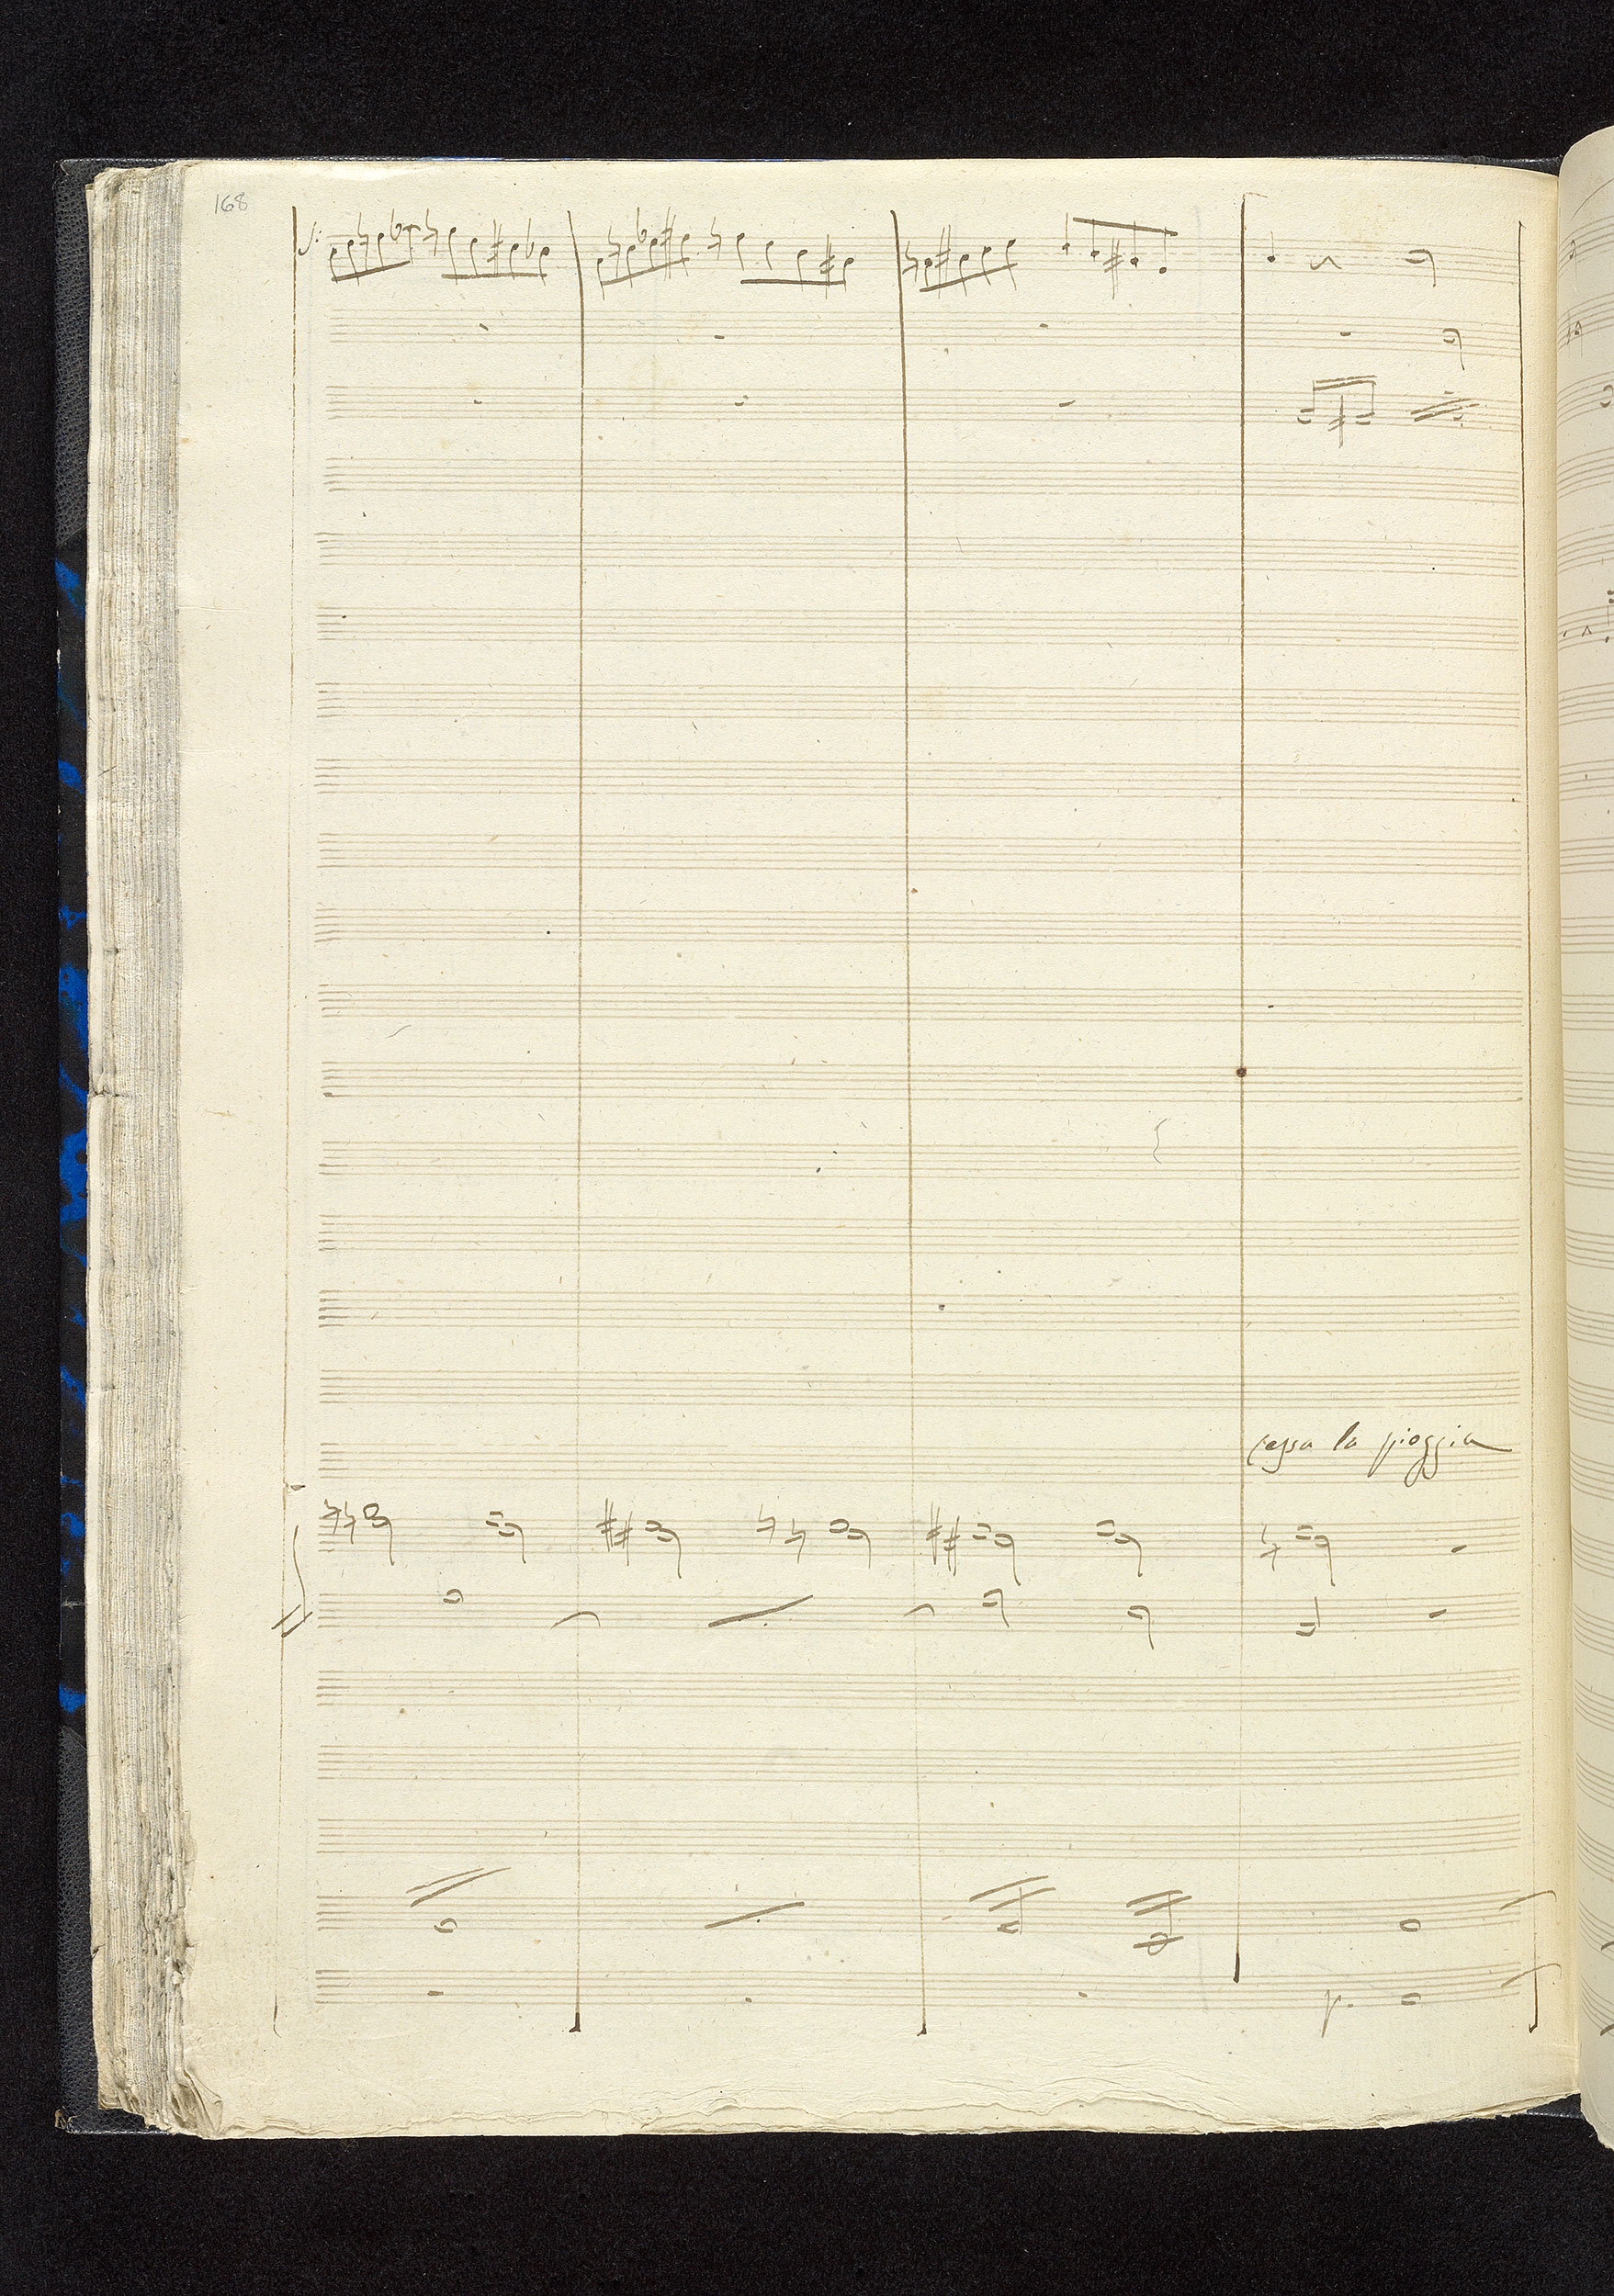 168
cessa la pioggia
p.